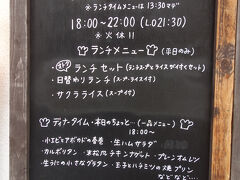 ※ランチタイムメニューは13:30マデ
18:00〜22:00(LO21:30)
※火休!!
ランチメニュー (平日のみ)
・ランチセット
・日替わりランチ(スープ・ライス付)
・サクラライス(スープ付)
ディナータイム・本日のちょっと…(一品メニュー)
18:00〜
・小エビとアボカドの春巻 ・生ハムサラダ
・カルボソタン ・チキンナゲット ・プレーンオムレツ
・生うにの小さなグラタン ・玉子とハチミツの大きプリン
などなど…